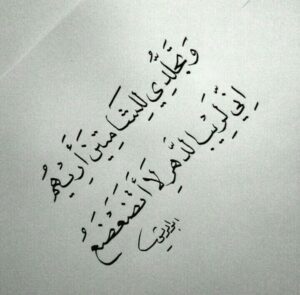 وَتَجَلُّدِي لِلشَّامِتِينَ أُرِيهُمُ
إِنِّي لَرَيْبِ الدَّهْرِ لَا أَتَضَعْضَعُ